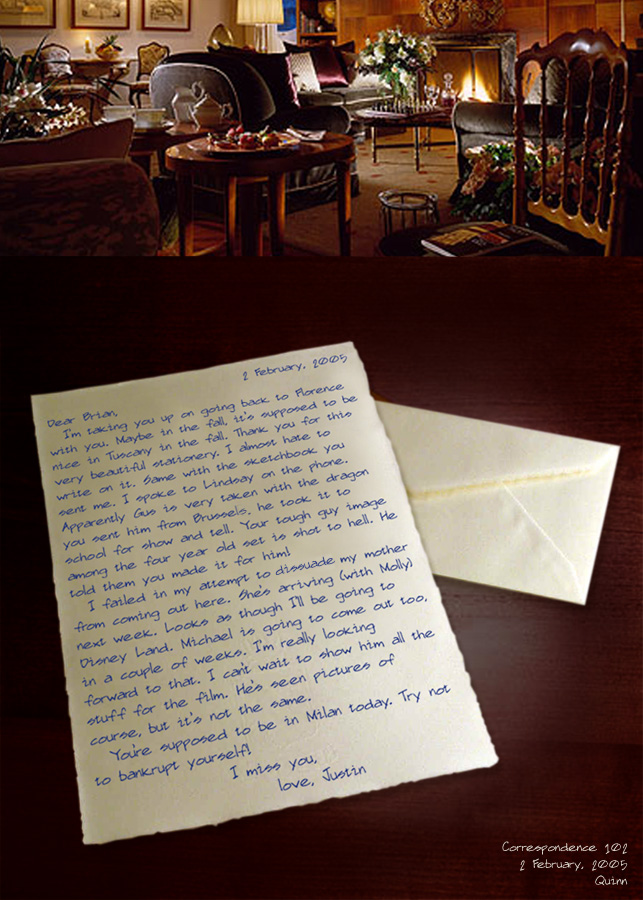 2 February, 2005
Dear Brian,
I'm taking you up on going back to Florence
with you. Maybe in the fall, it's supposed to be
nice in Tuscany in the fall. Thank you for this
very beautiful stationery. I almost hate to
write on it. Same with the sketchbook you
sent me. I spoke to Lindsay on the phone.
Apparently Gus is very taken with the dragon
you sent him from Brussels, he took it to
school for show and tell. Your tough guy image
among the four year old set is shot to hell. He
told them you made it for him!
I failed in my attempt to dissuade my mother
from coming out here. She's arriving (with Molly)
next week. Looks as though I'll be going to
Disney Land. Michael is going to come out too,
in a couple of weeks. I'm really looking
forward to that. I can't wait to show him all the
stuff for the film. He's seen pictures of
course, but it's not the same.
You're supposed to be in Milan today. Try not
to bankrupt yourself!
I miss you,
love, Justin
Correspondence 102
2 February, 2005
Quinn